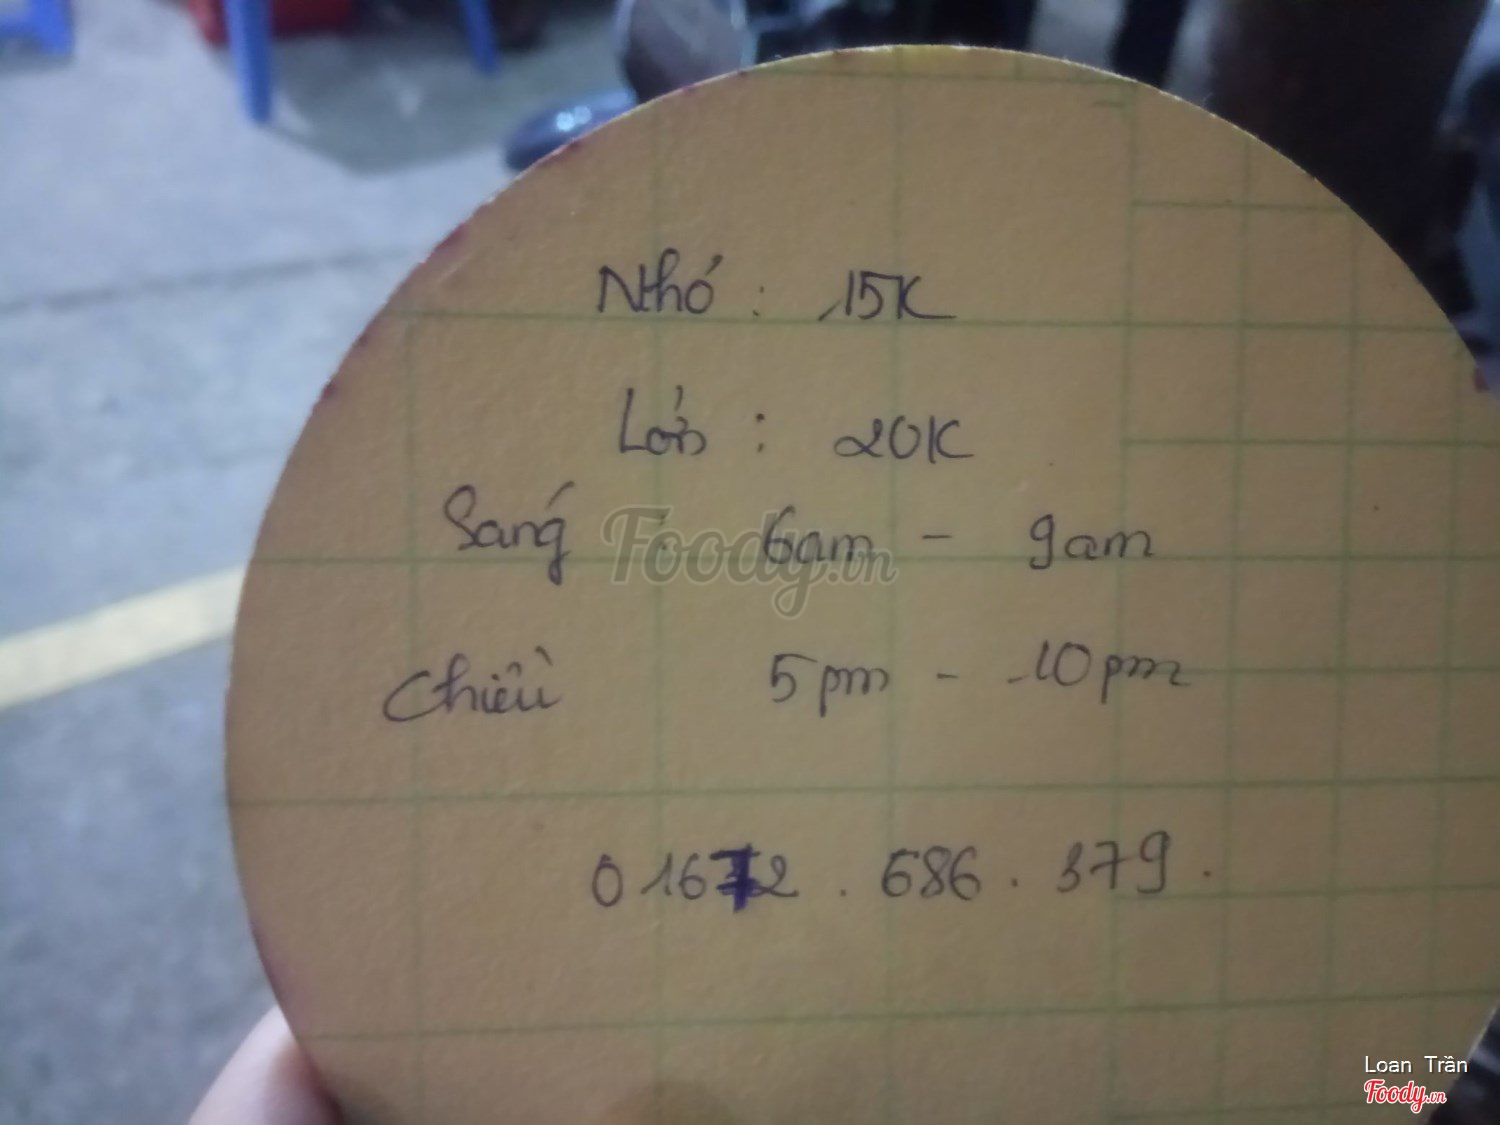 Nhỏ : 15K
Lớn : 20K
Sáng : 6am - 9am
Chiều 5pm - 10pm
01672 . 686 . 379 .
Foody.vn
Loan Trần
Foody.vn